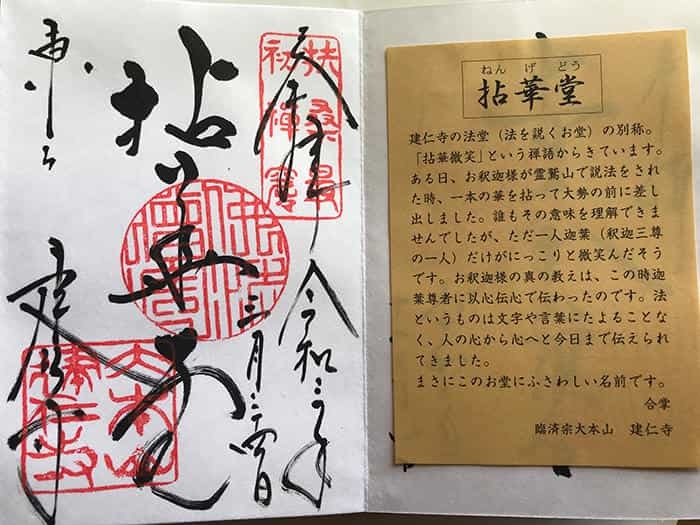 扶桑最
初禪窟
奉拝
三月二四日
拈華堂
東山
建仁寺
大本山
建仁寺
ねんげどう
拈華堂
建仁寺の法堂（法を説くお堂）の別称。
「拈華微笑」という禅語からきています。
ある日、お釈迦様が霊鷲山で説法をされ
た時、一本の華を拈って大勢の前に差し
出しました。誰もその意味を理解できま
せんでしたが、ただ一人迦葉（釈迦三尊
の一人）だけがにっこりと微笑んだそう
です。お釈迦様の真の教えは、この時迦
葉尊者に以心伝心で伝わったのです。法
というものは文字や言葉にたよることな
く、人の心から心へと今日まで伝えられ
てきました。
まさにこのお堂にふさわしい名前です。
合掌
臨済宗大本山　建仁寺